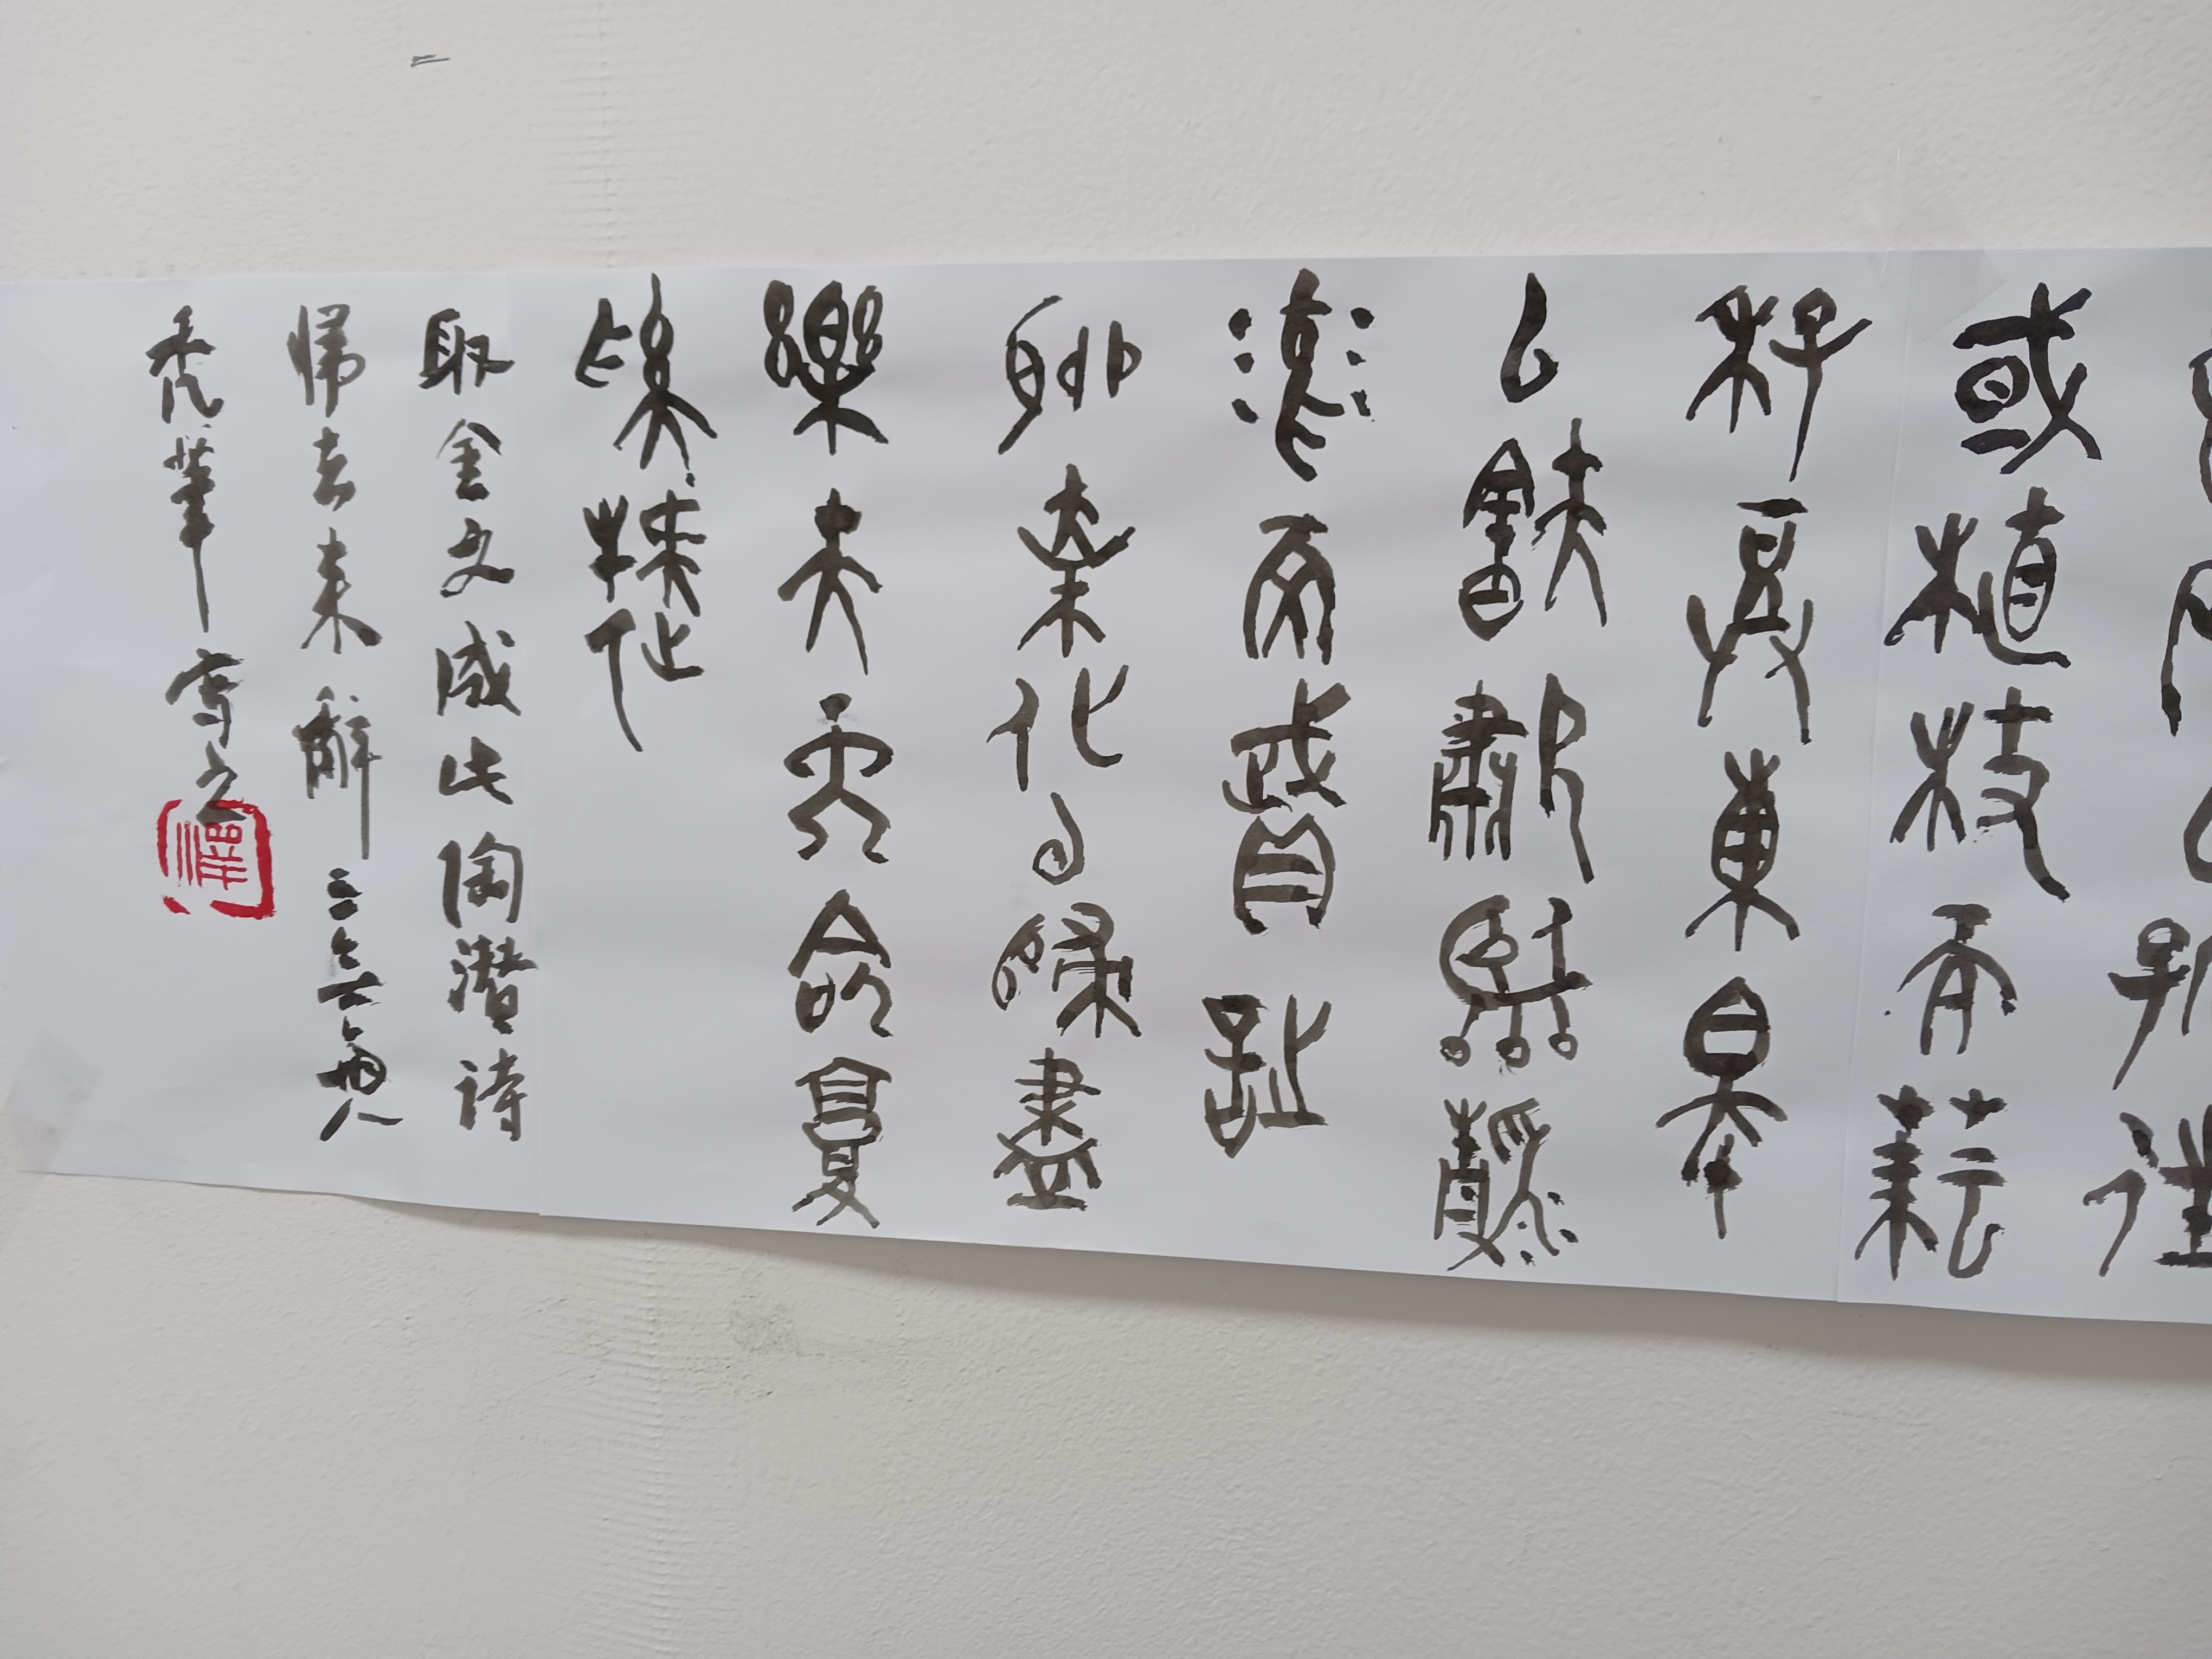 孤往
或植杖而耘
耔登東皋
以舒嘯臨清
流而賦詩
聊乘化以歸盡
樂夫天命復
奚疑
取金文成此陶潛詩
帰去来辭
禿筆寫之
澤